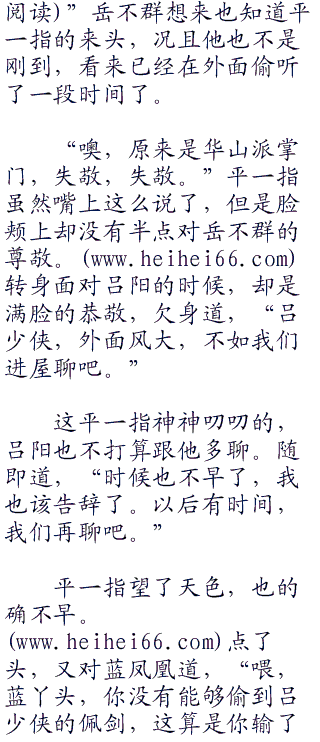 阅读)”岳不群想来也知道平
一指的来头，况且他也不是
刚到，看来已经在外面偷听
了一段时间了。
“噢，原来是华山派掌
门，失敬，失敬。”平一指
虽然嘴上这么说了，但是脸
颊上却没有半点对岳不群的
尊敬。(www.heihei66.com)
转身面对吕阳的时候，却是
满脸的恭敬，欠身道，“吕
少侠，外面风大，不如我们
进屋聊吧。”
这平一指神神叨叨的，
吕阳也不打算跟他多聊。随
即道，“时候也不早了，我
也该告辞了。以后有时间，
我们再聊吧。”
平一指望了天色，也的
确不早。
(www.heihei66.com)点了
头，又对蓝凤凰道，“喂，
蓝丫头，你没有能够偷到吕
少侠的佩剑，这算是你输了